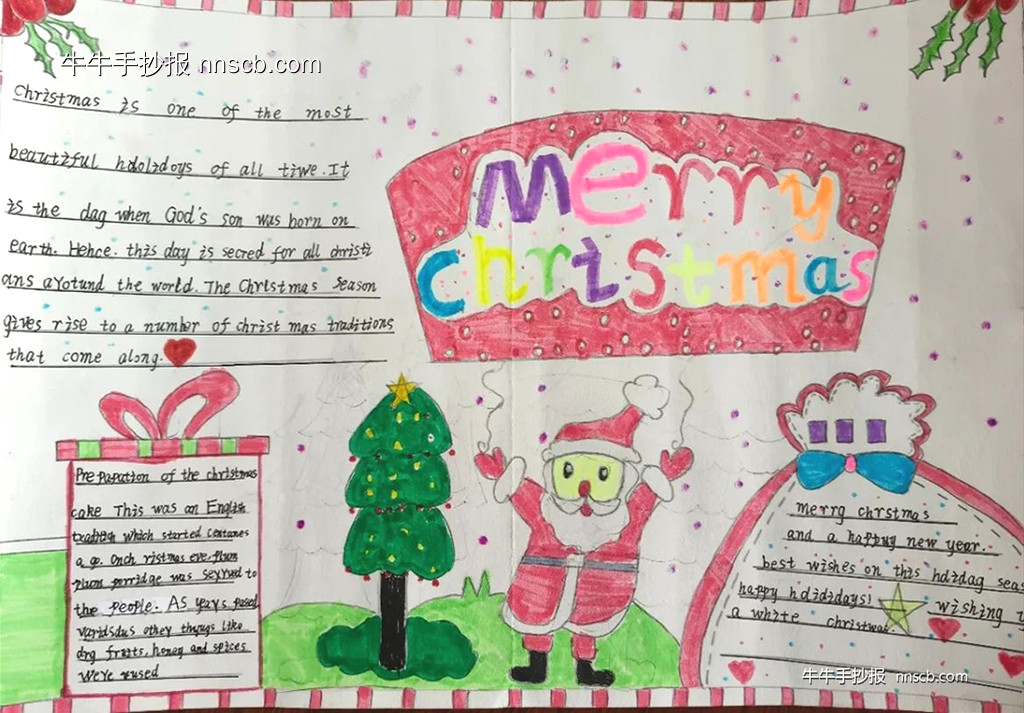 牛牛手抄报 nnscb.com
Christmas is one of the most
beautiful hdolidoys of all tiwe. It
is the dag when God's son was born on
earth. Hence. this day is secred for all christi
ans ayotund the world. The Christmas Season
gives rise to a number of christ mas traditions
that come along.
merry
christmas
Preparution of the christmas
cake This was an English
tradition which started
a go. Onch ristmas eve. plum
plum porridge was seyrwd to
the people. As years pased
othey thwugs like
drg fraits, honey and spices
were rused
merrg chrstmas
and a happug new year.
best wishes on this hdidag seas
happy hdididays! wishing
a white christmas.
牛牛手抄报 nnscb.com